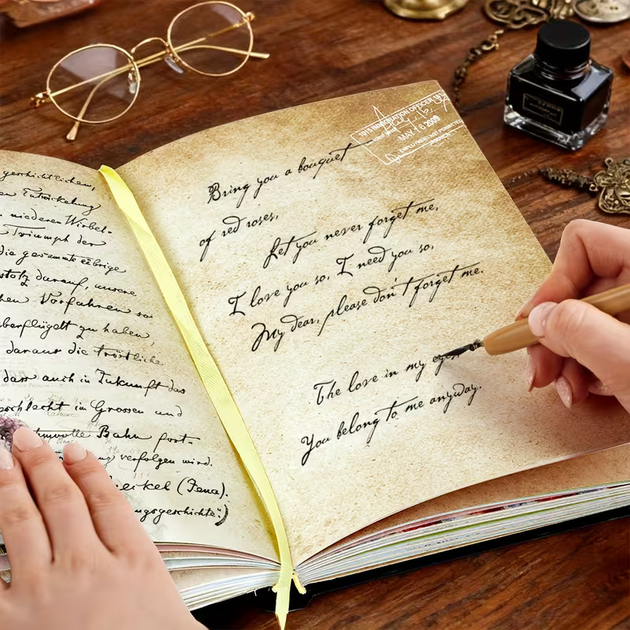 geschichtlichen,
Entwickelung
niederen Wirbel-
Triumph der
die gesammte übrige
stolz darauf, unsere
hen Vorfahren so
berflügelt zu haben,
daraus die tröstliche
dass auch in Zukunft das
schlecht in Grossen und
mvolle Bahn fort-
verfolgen wird.
(Jena).
ngsgeschichte")
IMMIGRATION OFFICER
MAY 16
Bring you a bouquet
of red roses,
Let you never forget me,
I love you so, I need you so,
My dear, please don't forget me.
The love in my
You belong to me anyway.